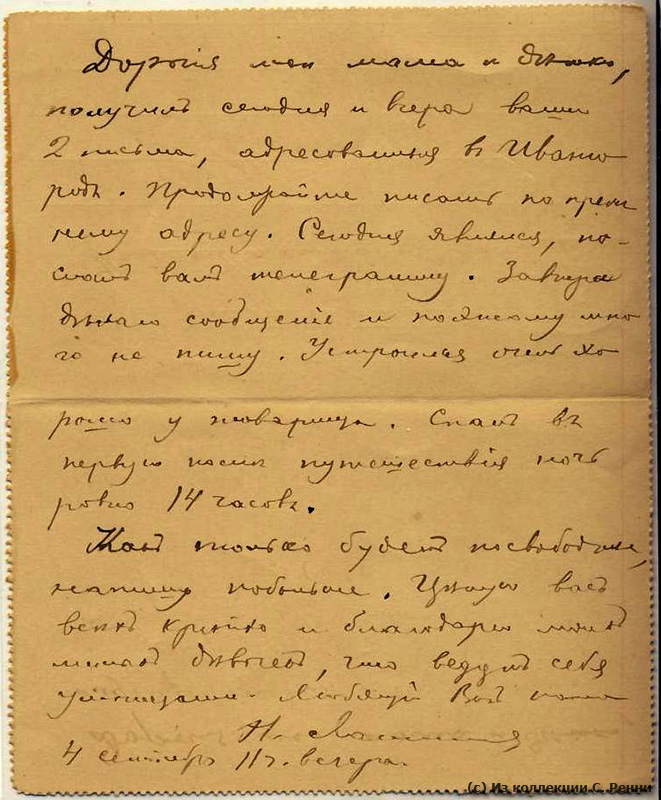 Дорогія мои мама и дѣтки,
получилъ сегодня и вчера ваши
2 письма, адресованныя въ Ивано
родъ. Продолжайте писать по преж
нему адресу. Сегодня явился, по-
слалъ вамъ телеграмму. Завтра
дѣлаю сообщеніе и поэтому мно
го не пишу. Устроился очень хо
рошо у товарища. Спалъ въ
первую послѣ путешествія ночь
ровно 14 часовъ.
Какъ только будетъ посвободнѣе,
напишу побольше. Цѣлую васъ
всѣхъ крѣпко и благодарю моихъ
милыхъ дѣвочекъ, что ведутъ себя
умницами. Любящій Васъ папа
Н.
4 сентября 11 ч. вечера.
(c) Из коллекции С. Ренни